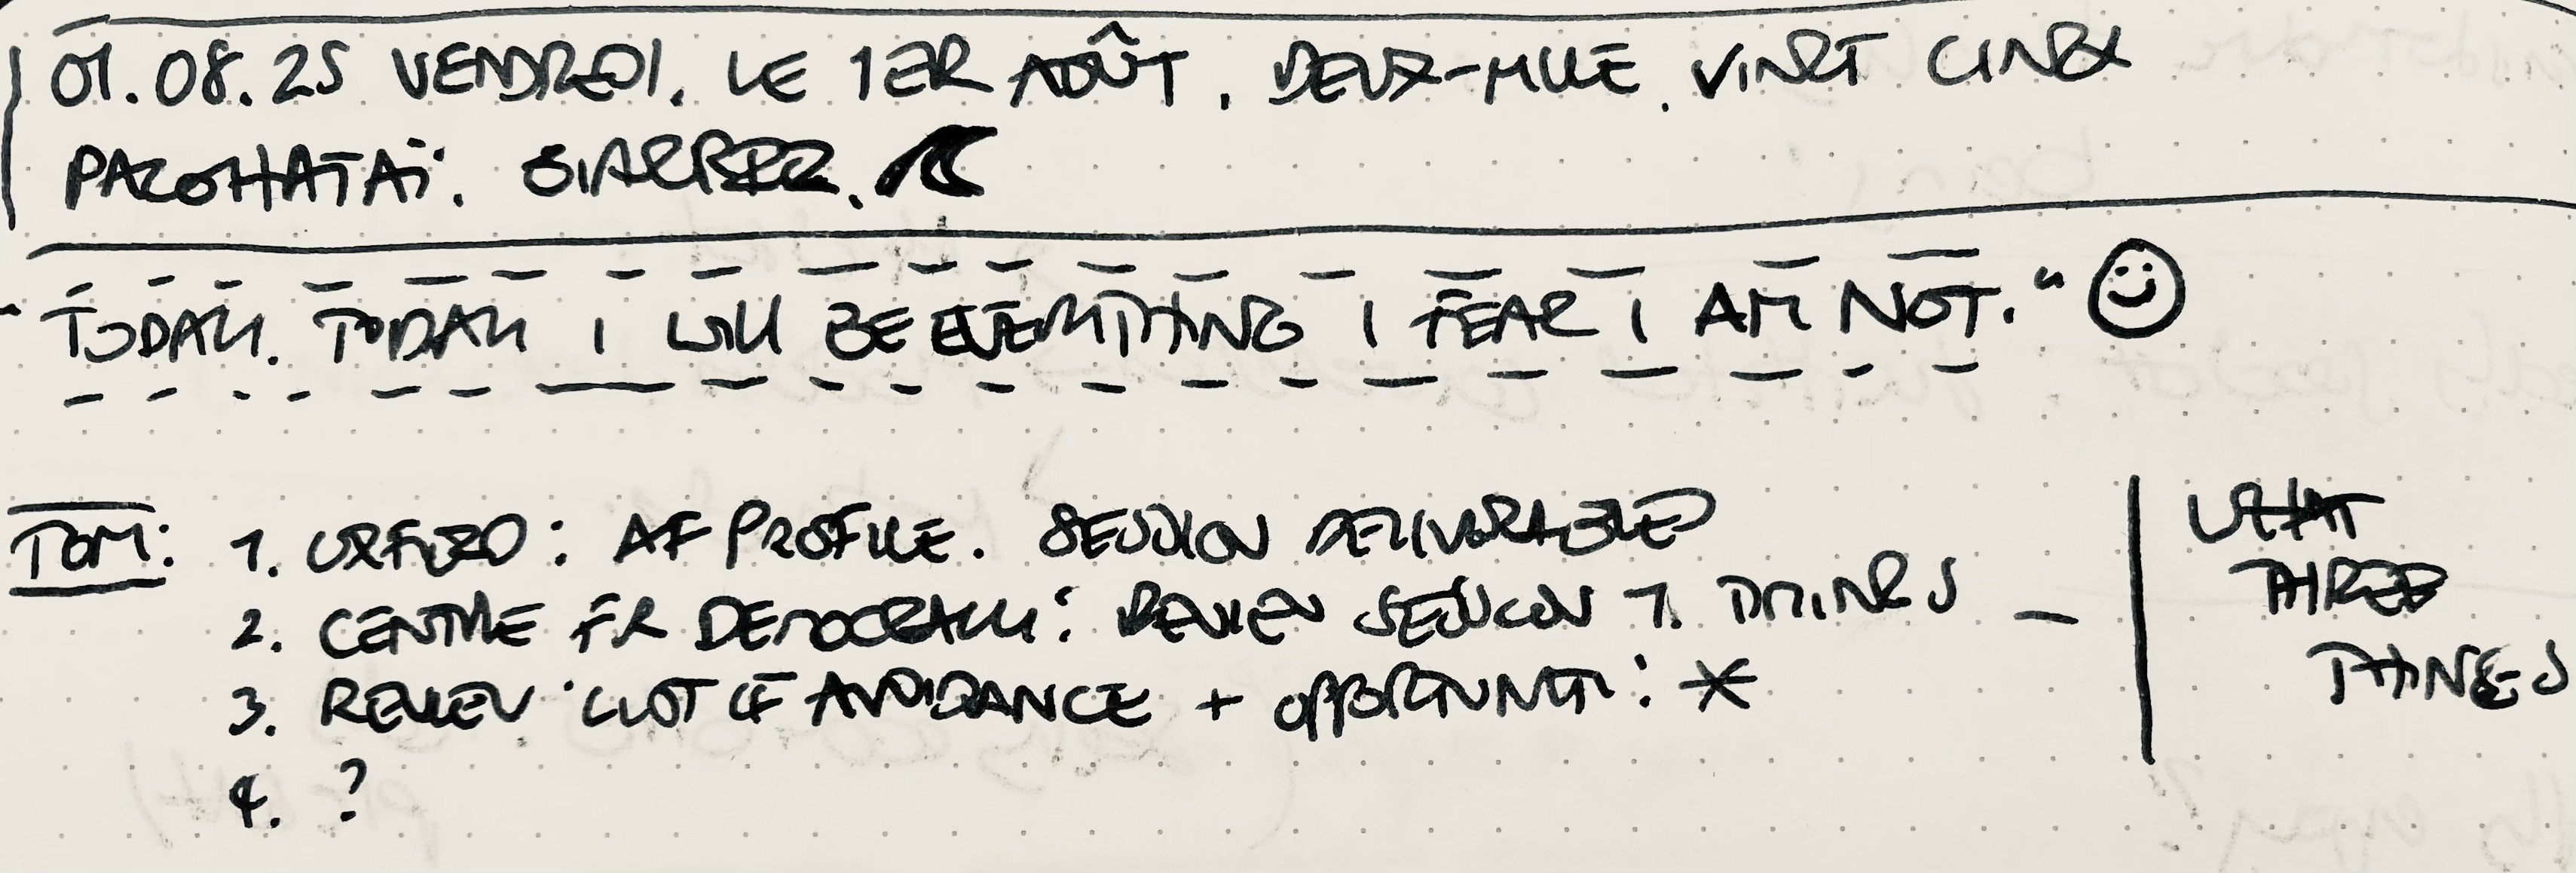 01.08.25 VENDREDI. LE 1ER AOÛT. DEUX-MILLE. VINGT CINQ
"TODAY. TODAY I WILL BE EVERYTHING I FEAR I AM NOT."
TOM: 1. : AF PROFILE. SESSION DELIVERABLES
2. CENTRE FR DEMOCRACY: REVIEW SESSION 1. TIMINGS –
3. REVIEW LIST OF AVOIDANCE + OPPORTUNITY: *
4. ?
WHAT
THREE
THINGS